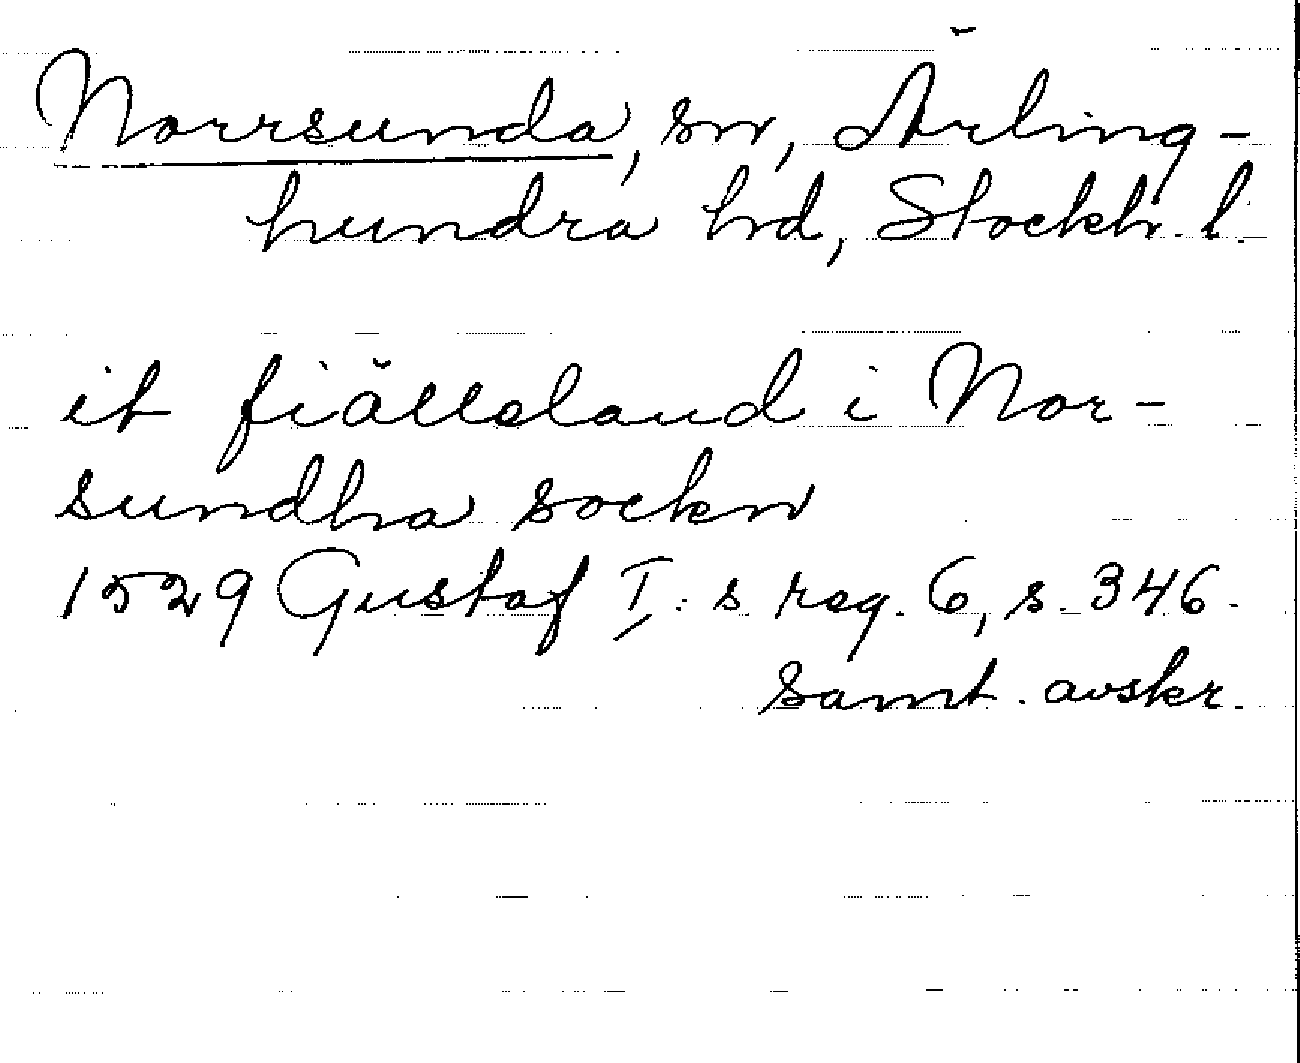 Norrsunda, sn, Ärling-
hundra hd, Stockh. l.
it fiällsland i Nor-
sundha sockn
1529 Gustaf I:s reg. 6, s. 346.
samt. avskr.